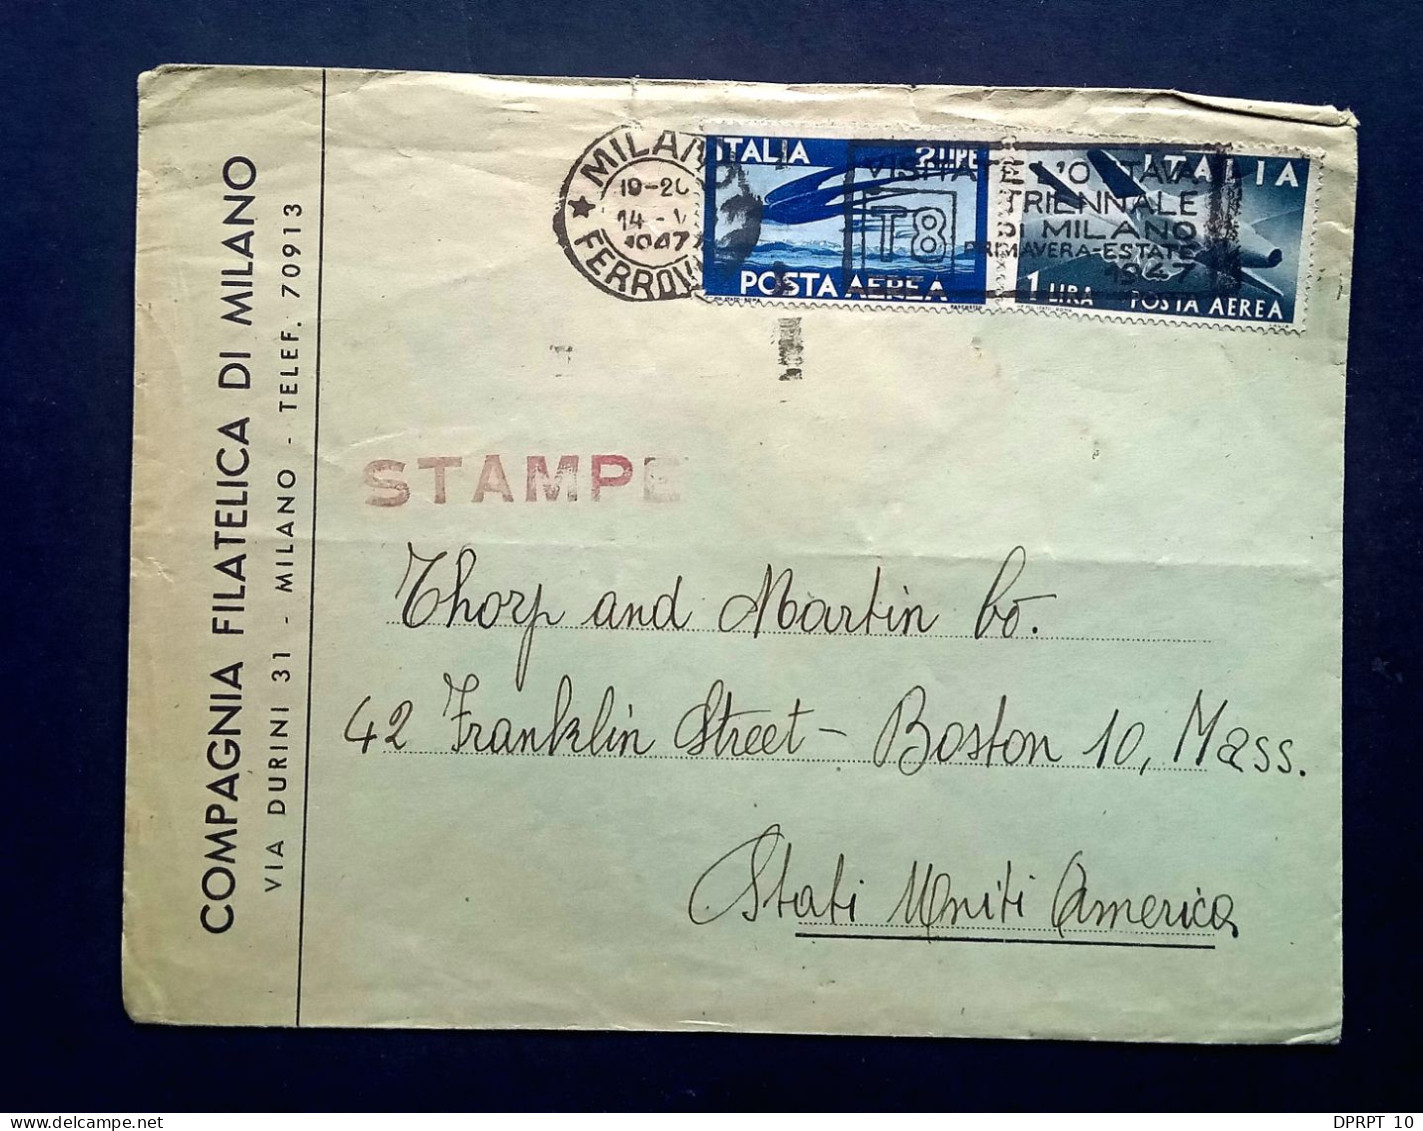 COMPAGNIA FILATELICA DI MILANO
VIA DURINI 31 - MILANO - TELEF. 70913
MILANO
19-20
14 -V
1947
FERROVIA
ITALIA 2 LIRE
POSTA AEREA
VISITATE L'OTTAVA
T8
TRIENNALE
DI MILANO
PRIMAVERA-ESTATE
1947
ITALIA
1 LIRA POSTA AEREA
STAMPE
Thorp and Martin Co.
42 Franklin Street - Boston 10, Mass.
Stati Uniti America
DPRPT 10